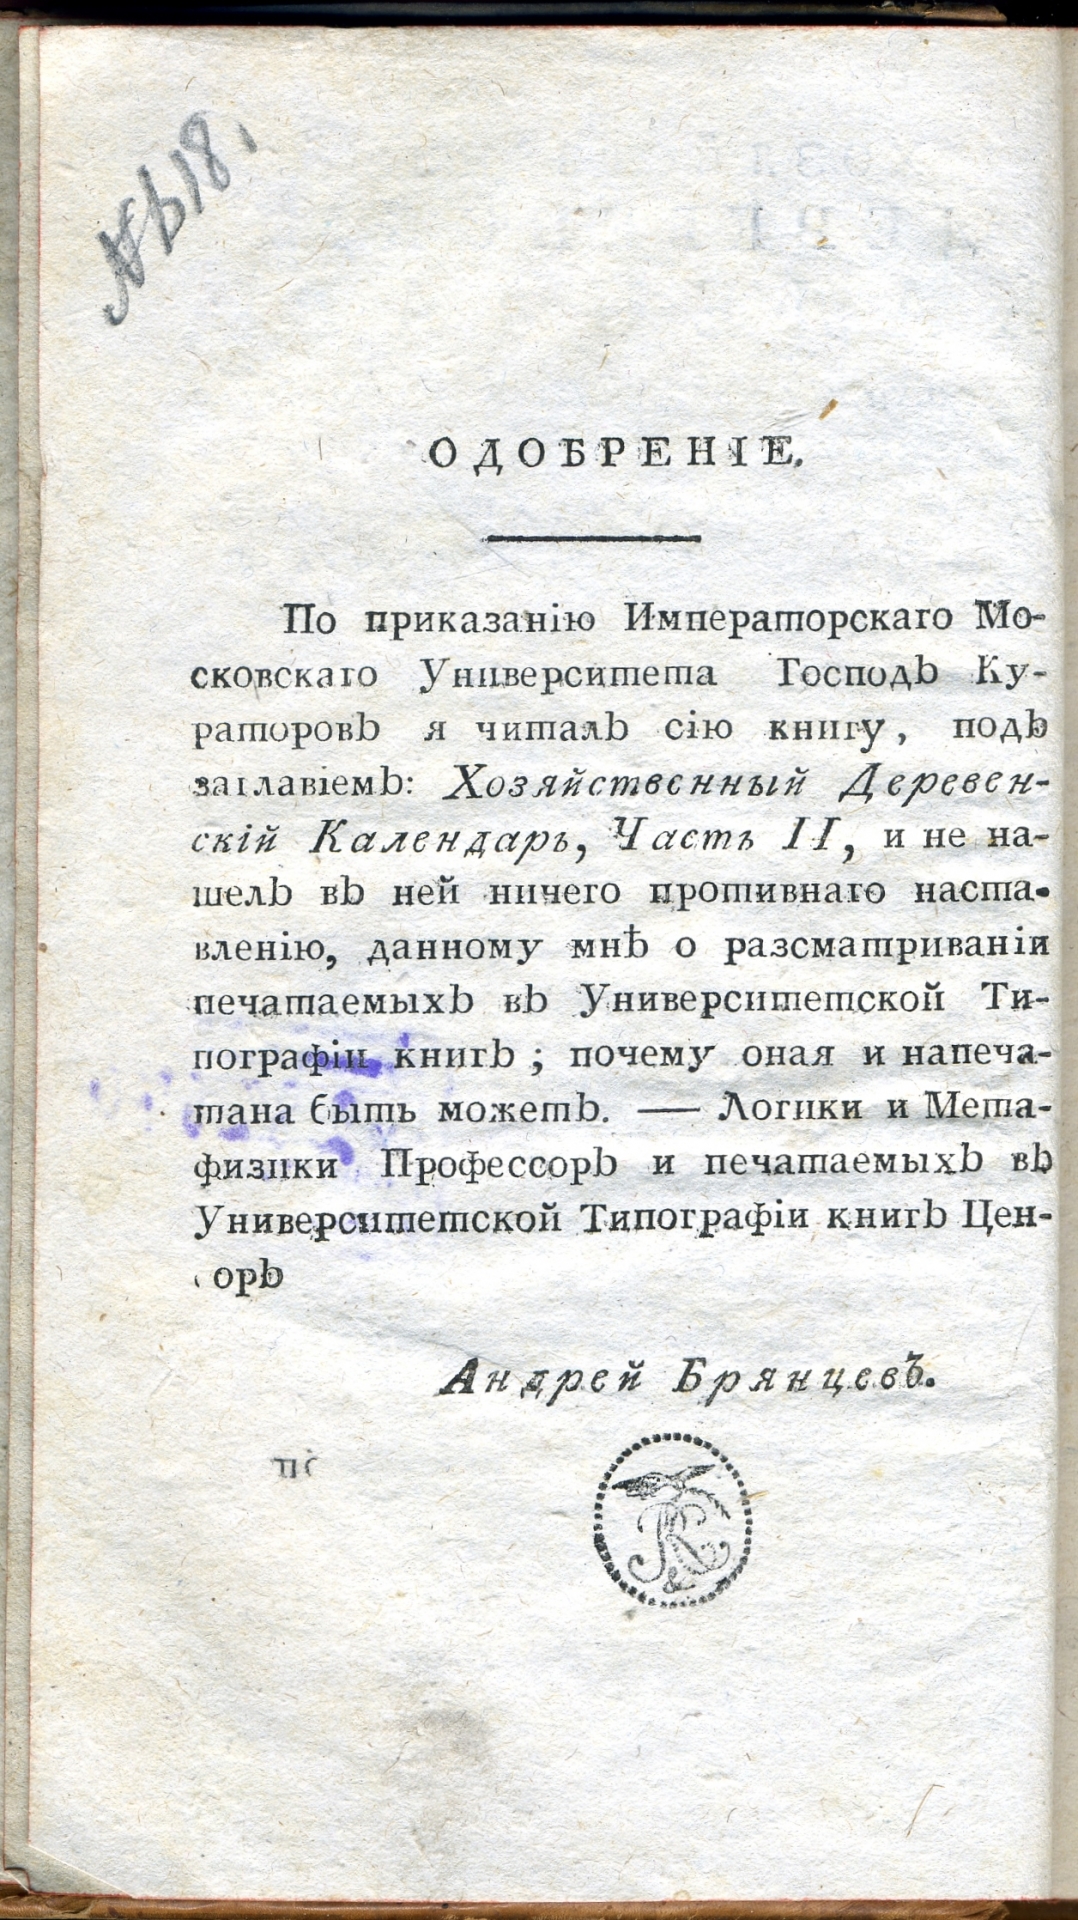 № 18.
ОДОБРЕНІЕ.
По приказанію Императорскаго Мо-
сковскаго Университета Господъ Ку-
раторовъ я читалъ сію книгу, подъ
заглавіемъ: Хозяйственный Деревен-
скій Календарь, Часть II, и не на-
шелъ въ ней ничего противнаго наста-
вленію, данному мнѣ о разсматриваніи
печатаемыхъ въ Университетской Ти-
пографіи книгъ; почему оная и напеча-
тана быть можетъ. — Логики и Мета-
физики Профессоръ и печатаемыхъ въ
Университетской Типографіи книгъ Цен-
соръ
Андрей Брянцевъ.